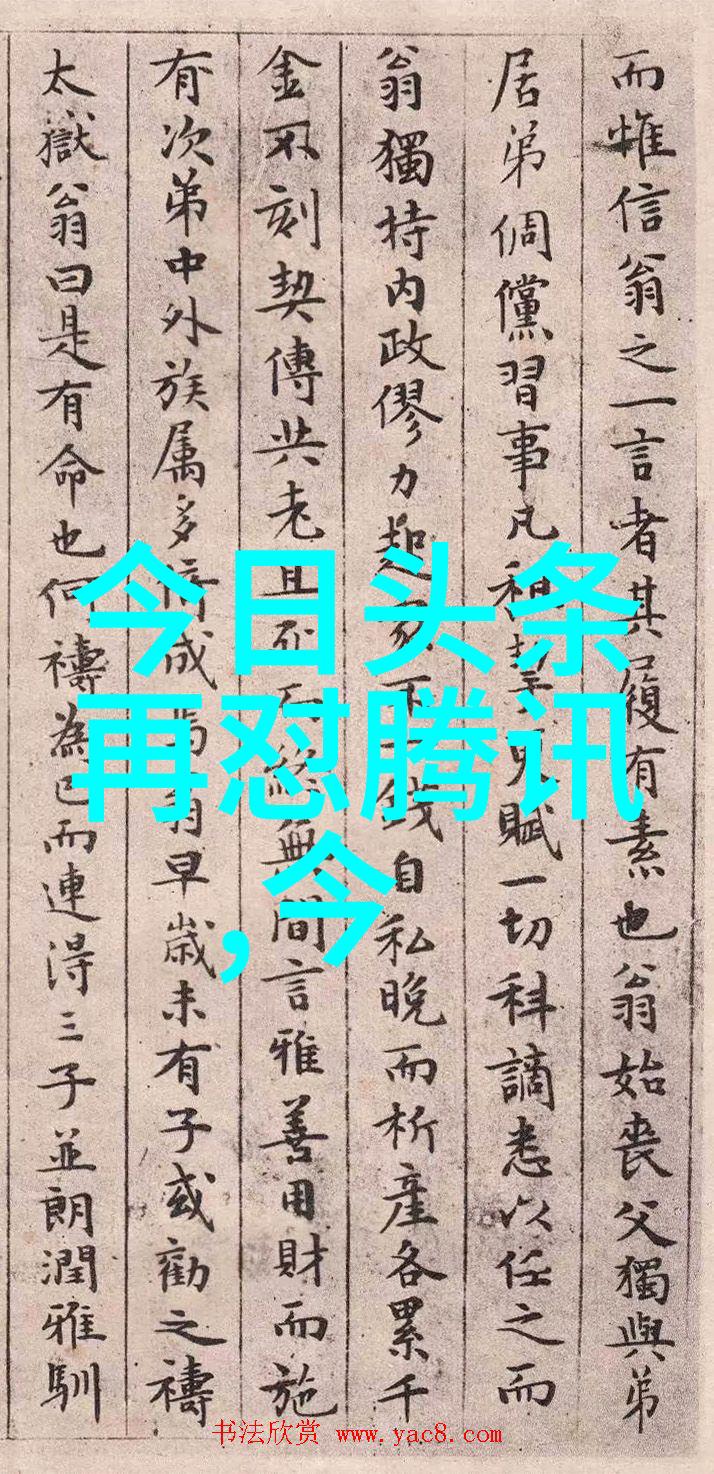 而惟信翁之一言者其履有素也翁始喪父獨與弟
居弟倜儻習事凡租挈更賦一切科謫悉以任之而
翁獨持内政僇力起家不一錢自私晚而析產各累千
金不刻契傳共老且死而絶無間言雅善用財而施
有次弟中外族属多倚成焉翁早歳未有子或勸之禱
太嶽翁曰是有命也何禱為已而連得三子並朗潤雅馴
今日头条
再怼腾讯
,今
书法欣赏 www.yac8.com